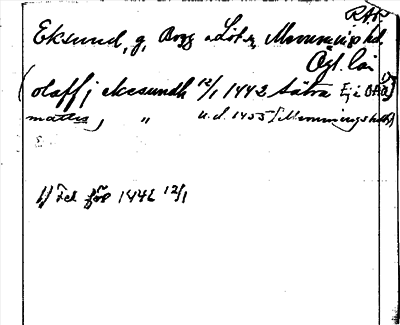 RAP
Eksund, g, Borg o Löt sn, Memmings hd.
Ögl. län
(olaff j ekesundh 12/1 1442 Sätra Ej i Of a)
mattis j " u.d. 1455 (Memmings hd)
1) Fel för 1442 12/1